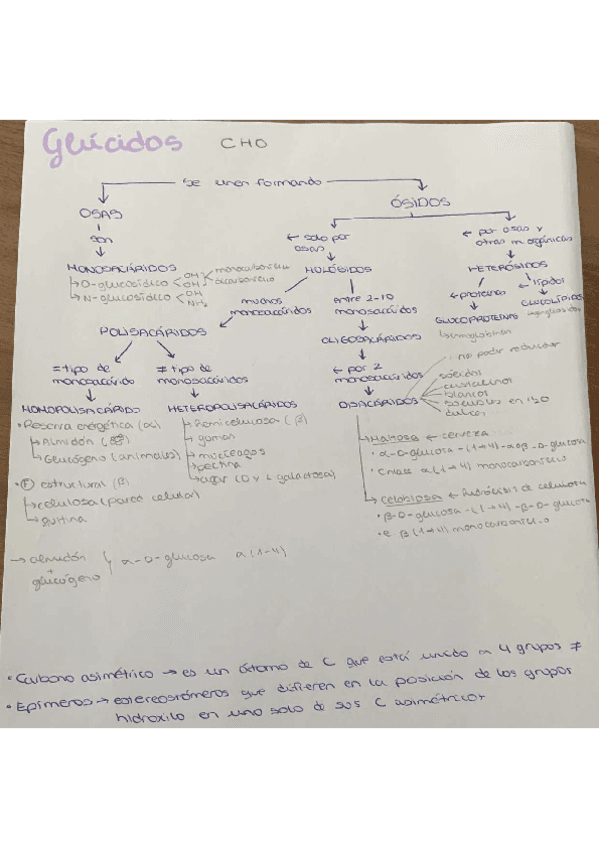 Glúcidos CHO
se unen formando
OSAS
ÓSIDOS
son
← solo por osas
← por osas y otras m. orgánicas
MONOSACÁRIDOS
→ O-glucosídico < OH OH monocarbonílico dicarbonílico
→ N-glucosídico < OH NH₂
HOLÓSIDOS
HETERÓSIDOS
muchos monosacáridos
entre 2-10 monosacáridos
← proteínas
← lípidos
GLUCOPROTEÍNAS
GLUCOLÍPIDOS
hemoglobina
POLISACÁRIDOS
OLIGOSACÁRIDOS
= tipo de monosacárido
≠ tipo de monosacáridos
← por 2 monosacáridos
no poder reductor
sólidos
cristalinos
blancos
solubles en H₂O
dulces
DISACÁRIDOS
MONOPOLISACÁRIDO
HETEROPOLISACÁRIDOS
• Reserva energética (α)
↳ Almidón
↳ Glucógeno (animales)
• (F) estructural (β)
↳ celulosa (pared celular)
↳ quitina
↳ Hemicelulosa (β)
↳ gomas
↳ mucílagos
↳ pectina
↳ agar (D y L galactosa)
↳ Maltosa ← cerveza
• α-D-glucosa-(1→4)-α o β-D-glucosa
• enlace α(1→4) monocarbonílico
↳ Celobiosa ← hidrólisis de celulosa
• β-D-glucosa-(1→4)-β-D-glucosa
• e. β(1→4) monocarbonílico
→ almidón + glucógeno } α-D-glucosa α(1-4)
• Carbono asimétrico → es un átomo de C que está unido a 4 grupos ≠
• Epímeros → estereoisómeros que difieren en la posición de los grupos
hidroxilo en uno solo de sus C asimétricos